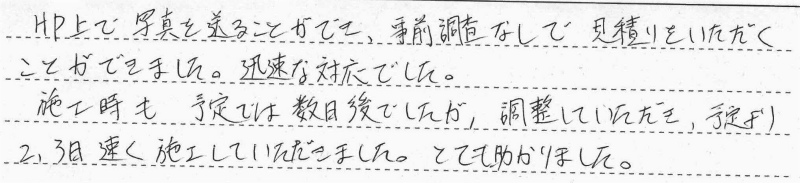 HP上で写真を送ることができ、事前調査なしで見積りをいただく
ことができました。迅速な対応でした。
施工時も 予定では数日後でしたが、調整していただき、予定より
2,3日速く施工していただきました。とても助かりました。